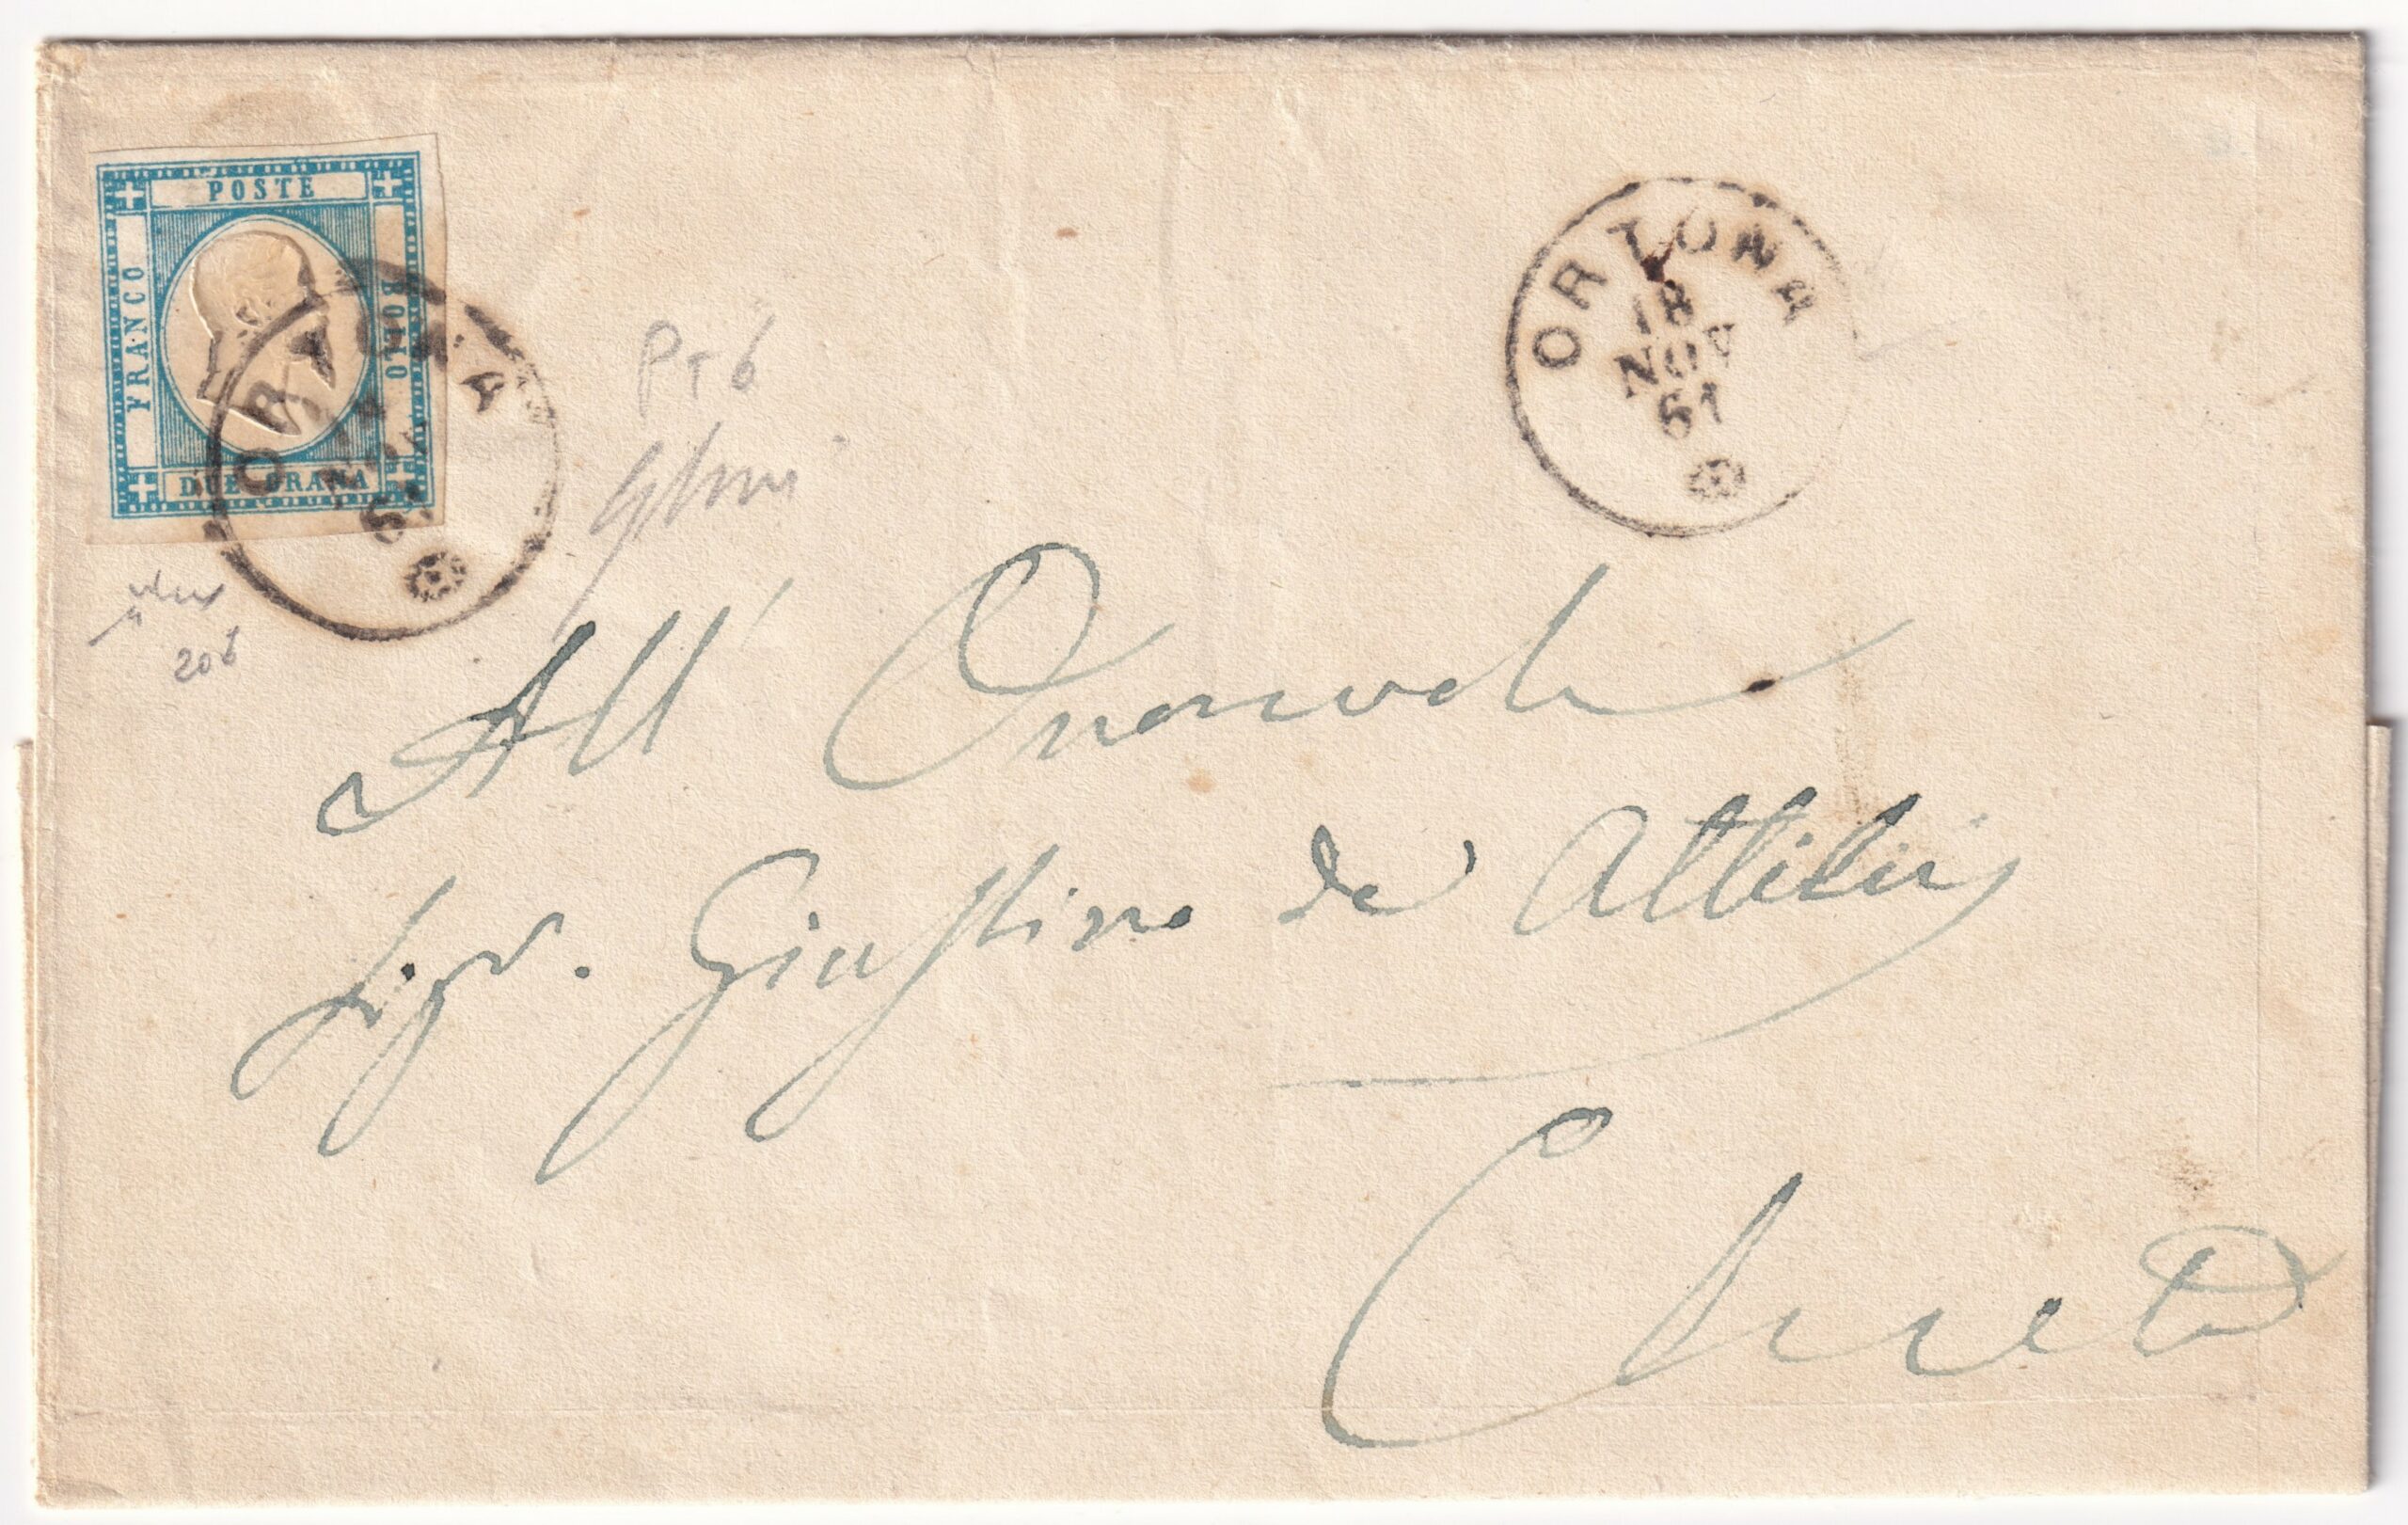 POSTE
FRANCO
BOLLO
DUE GRANA
ORTONA
ORTONA
18
NOV
61
PT 6
20 b
All' Onorevole
Sigr. Giustino de Attiliis
Chieti